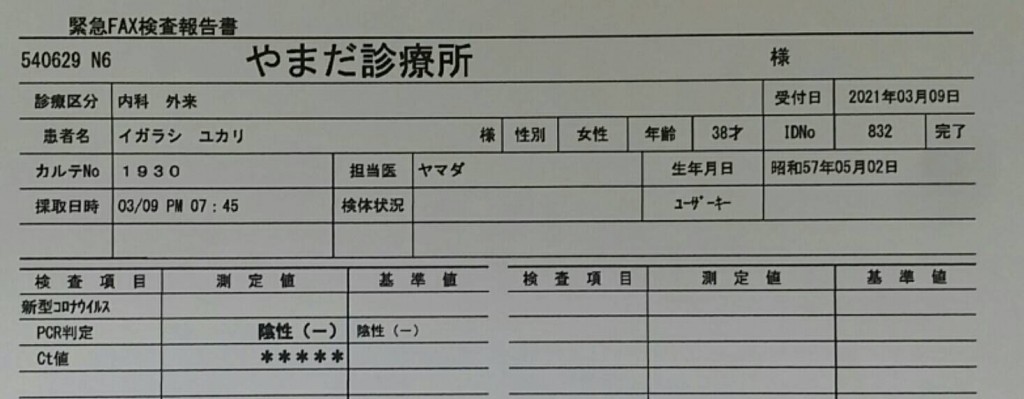 緊急FAX検査報告書
540629 N6 やまだ診療所 様
診療区分 内科 外来 受付日 2021年03月09日
患者名 イガラシ ユカリ 様 性別 女性 年齢 38才 IDNo 832 完了
カルテNo 1930 担当医 ヤマダ 生年月日 昭和57年05月02日
採取日時 03/09 PM 07:45 検体状況 ユーザーキー
検査項目 測定値 基準値 検査項目 測定値 基準値
新型コロナウイルス
PCR判定 陰性(-) 陰性(-)
Ct値 *****